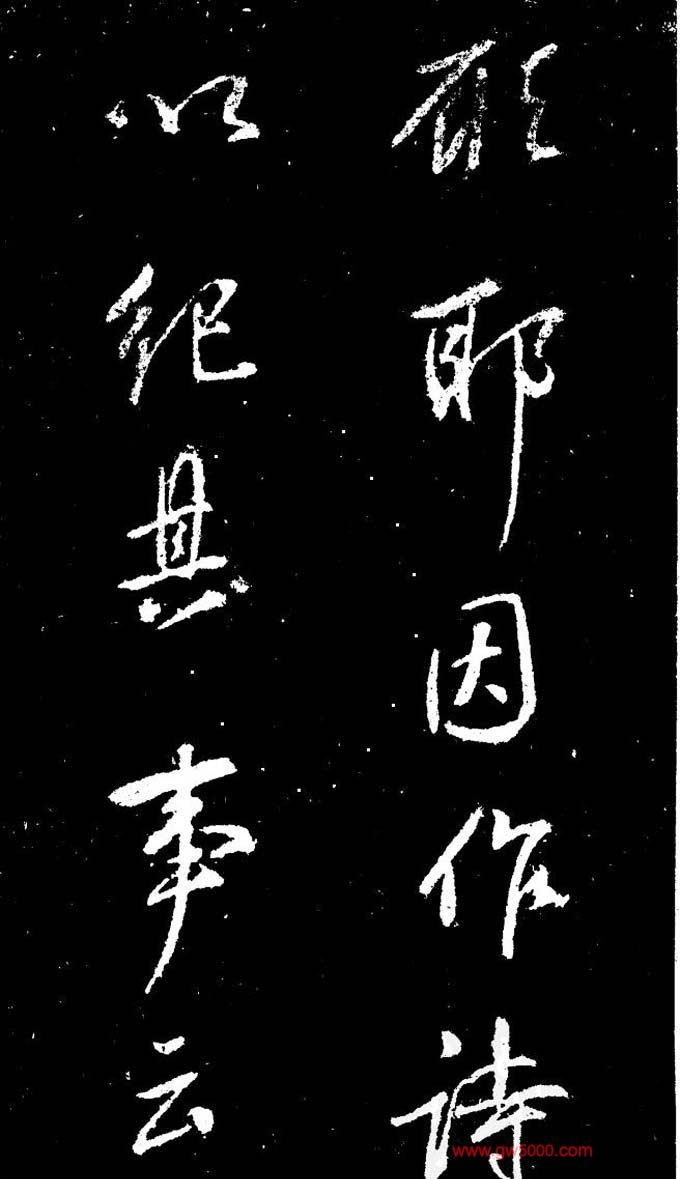 願耶因作詩
以紀其事云
www.gw5000.com